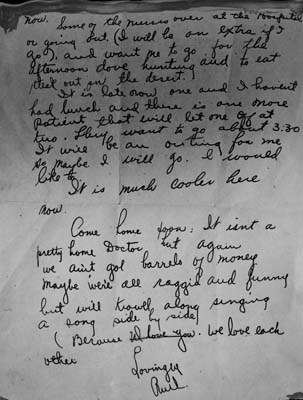 now. Some of the nurses over at the hospital
or going out (I will be an extra if I
go), and want me to go for the
afternoon dove hunting and to eat
out in the desert.)
It is late now one and I havent
had lunch and there is one more
patient that will let one go at
two. They want to go about 3:30
It will be an outing for me
so maybe I will go. I would
like to.
It is much cooler here
now.
Come home soon; It isnt a
pretty home Doctor but again
we aint got barrels of money
maybe were all raggid and funny
but will travel along singing
a song side by side
(Because I love you. We love each
other
Lovingly